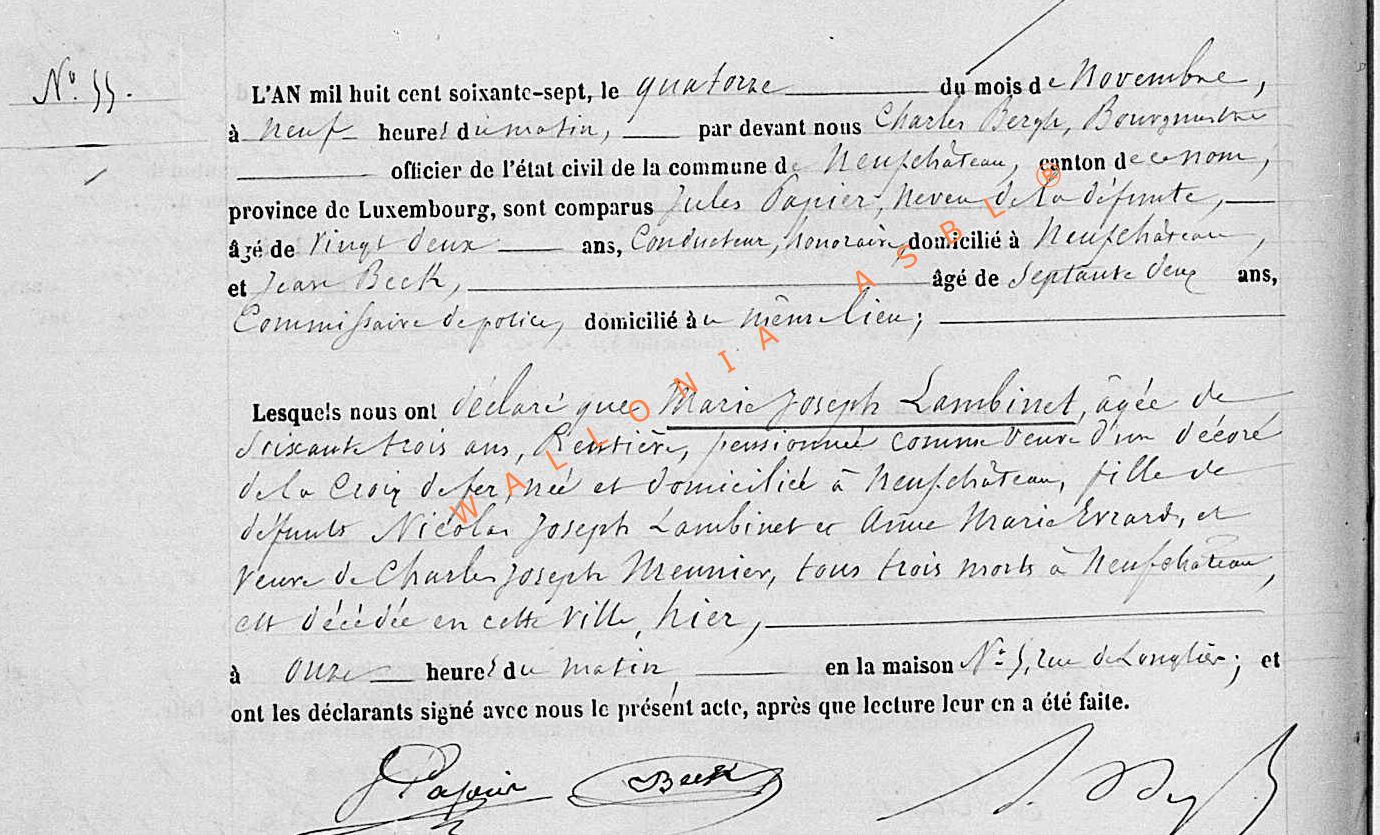 N° 55.
L'AN mil huit cent soixante-sept, le quatorze du mois de Novembre,
à neuf heures du matin, par devant nous Charles Bergh, Bourgmestre
officier de l'état civil de la commune de Neufchâteau, canton de ce nom,
province de Luxembourg, sont comparus Jules Papier, neveu de la défunte,
âgé de vingt deux ans, Conducteur, honoraire, domicilié à Neufchâteau,
et Jean Beck, âgé de septante deux ans,
Commissaire de police, domicilié au même lieu;
Lesquels nous ont déclaré que Marie Joseph Lambinet, âgée de
soixante trois ans, Rentière, pensionnée comme veuve d'un décoré
de la Croix de fer, née et domiciliée à Neufchâteau, fille de
défunts Nicolas Joseph Lambinet et Anne Marie Evrard, et
veuve de Charles Joseph Meunier, tous trois morts à Neufchâteau,
est décédée en cette ville, hier,
à onze heures du matin, en la maison N° 5, rue de Longlier; et
ont les déclarants signé avec nous le présent acte, après que lecture leur en a été faite.
J Papier Beck
WALLONIA ASBL ®